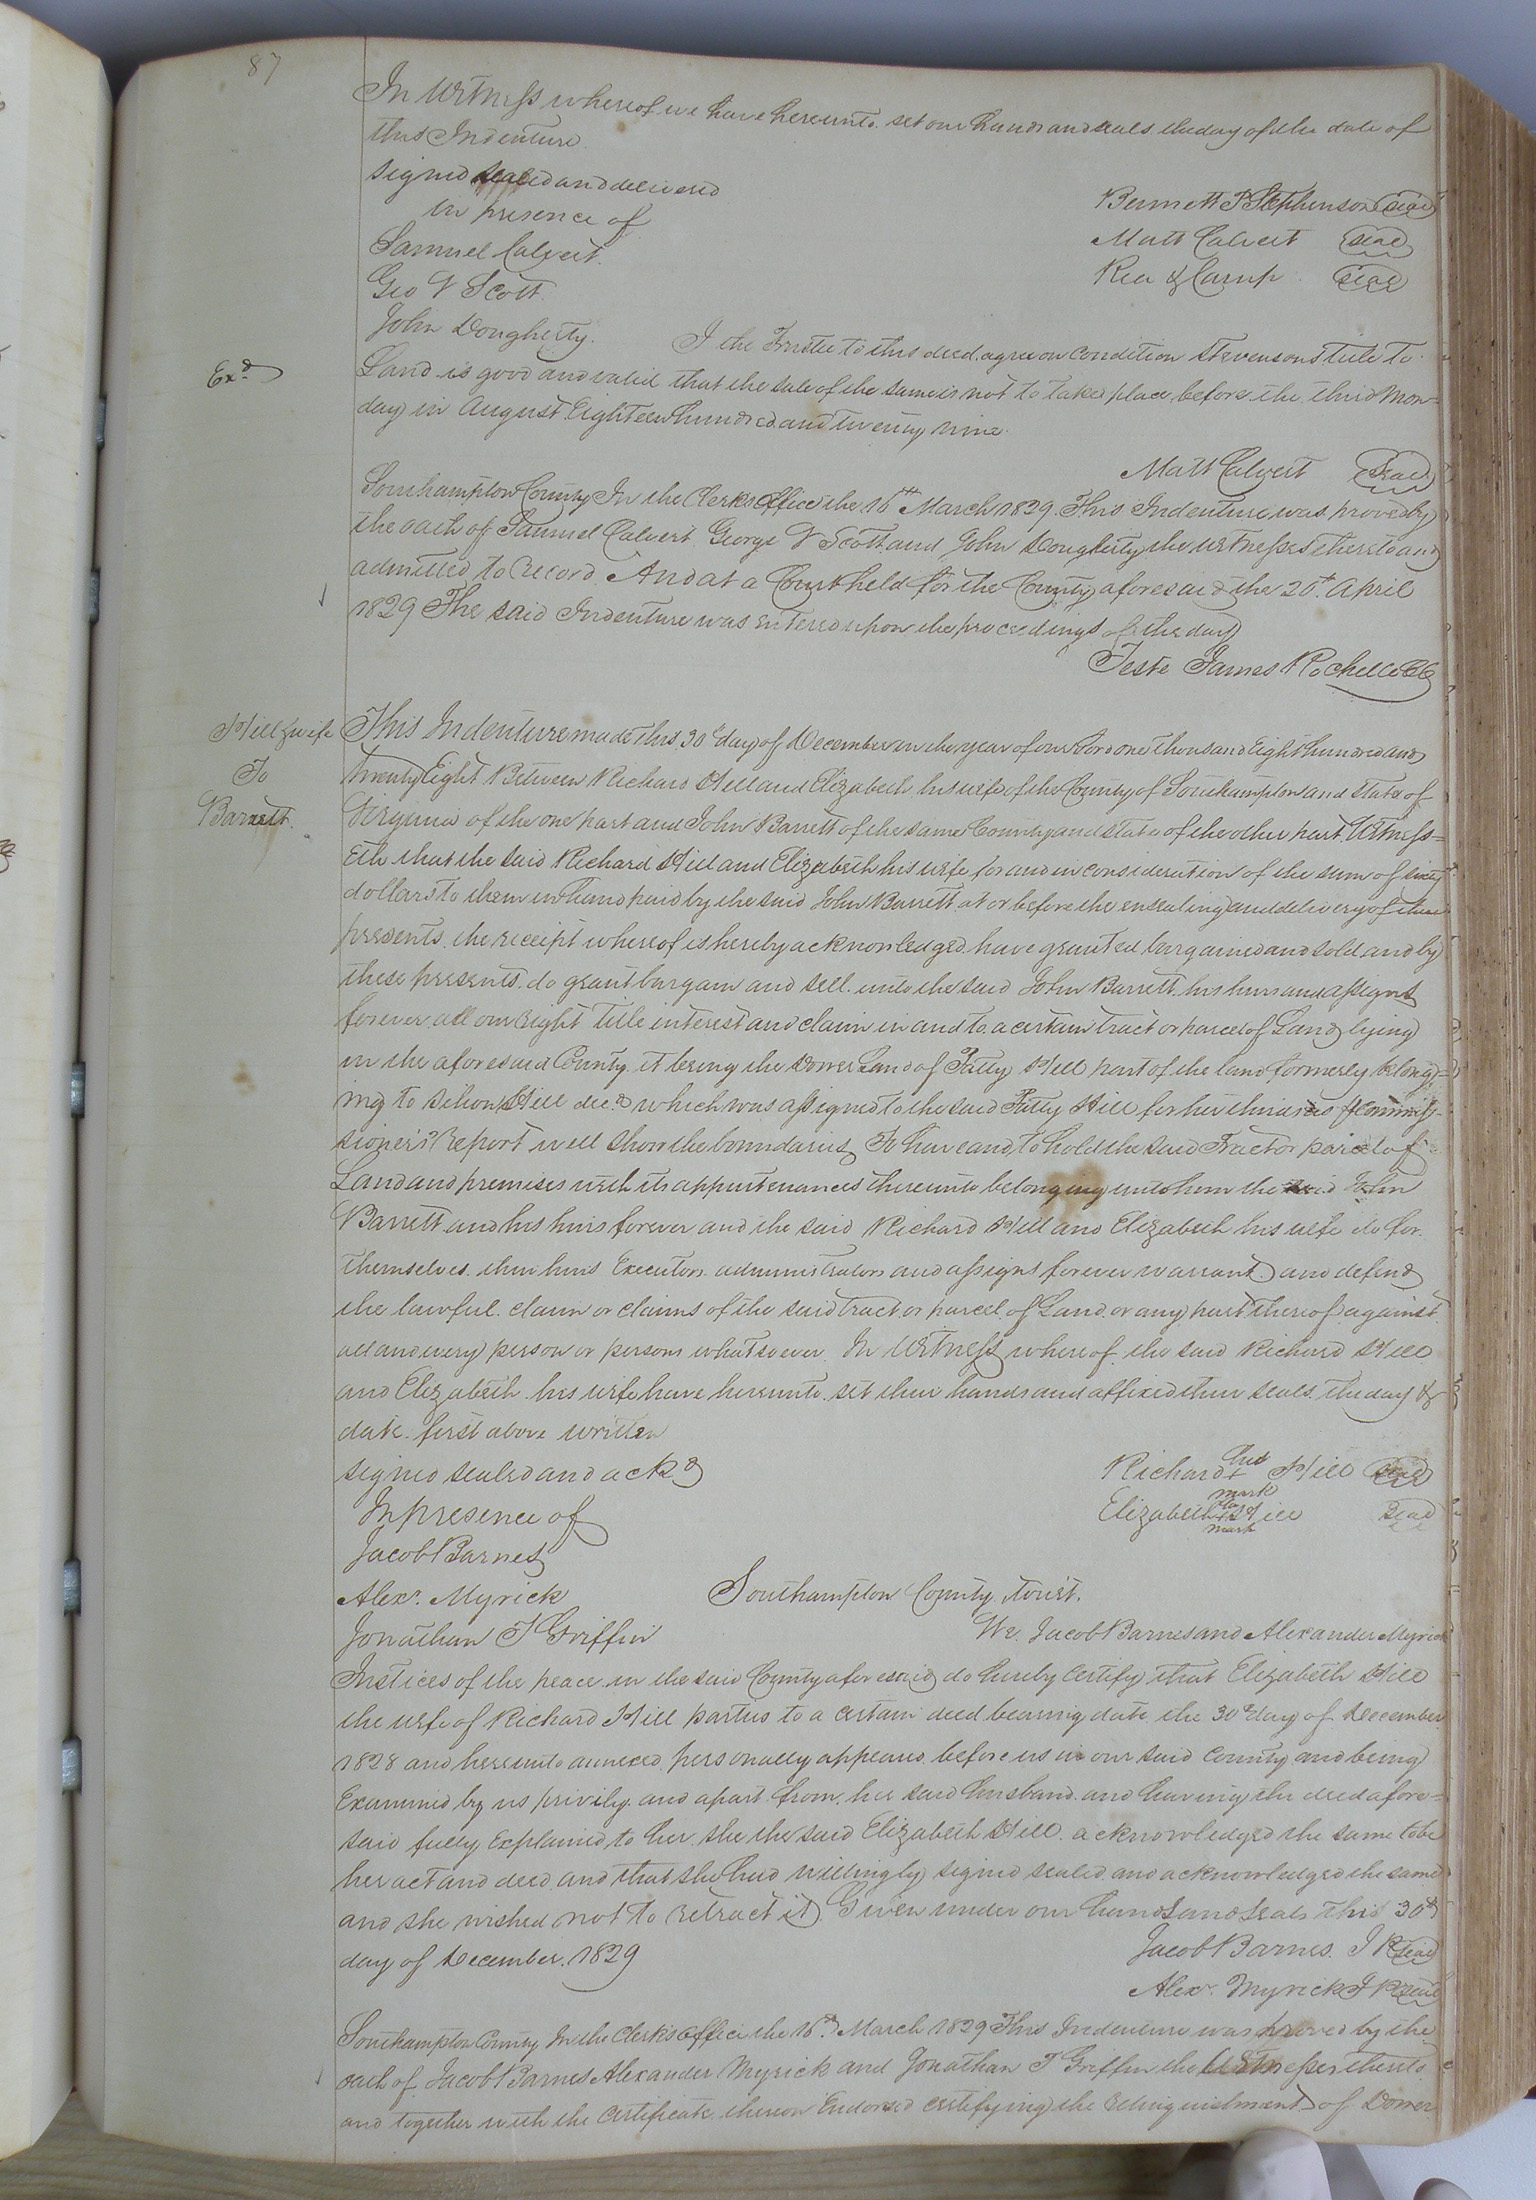 87
In Witness whereof we have hereunto set our hands and seals the day of the date of
this Indenture
signed sealed and delivered
in presence of
Bennett P Stephenson seal
Samuel Calvert
Matt Calvert seal
Geo V Scott
seal
John Dougherty. I the Trustee to this deed agree on condition Stevensons title to
Exd
Land is good and valid that the sale of the same is not to take place before the third Mon=
day in August Eighteen hundred and twenty nine
Matt Calvert Seal
Southampton County In the Clerks Office the 16th March 1829. This Indenture was proved by
the oath of Samuel Calvert George V Scott and John Dougherty the witnesses thereto and
admitted to Record And at a Court held for the County aforesaid the 20th April
1829 The said Indenture was entered upon the proceedings of the day
Teste James Rochelle CC
Hill & wife
To
Barrett
This Indenture made this 30th day of December in the year of our Lord one thousand Eight hundred and
twenty Eight Between Richard Hill and Elizabeth his wife of the County of Southampton and State of
Virginia of the one part and John Barrett of the same County and state of the other part Witness=
eth that the said Richard Hill and Elizabeth his wife for and in consideration of the sum of sixty
dollars to them in hand paid by the said John Barrett at or before the ensealing and delivery of these
presents, the receipt whereof is hereby acknowledged have granted bargained and sold and by
these presents do grant bargain and sell unto the said John Barrett his heirs and assigns
forever all our right title interest and claim in and to a certain tract or parcel of Land lying
in the aforesaid County it being the Dower Land of Patty Hill part of the land formerly belong=
ing to Hill decd which was assigned to the said Patty Hill for her thirds as Commis-
sioner's Report will show the boundaries To have and to hold the said Tract or parcel of
Land and premises with its appurtenances thereunto belonging unto him the said John
Barrett and his heirs forever and the said Richard Hill and Elizabeth his wife do for
themselves their heirs Executors administrators and assigns forever warrant and defend
the lawful claim or claims of the said tract or parcel of Land or any part thereof against
all and every person or persons whatsoever In Witness whereof the said Richard Hill
and Elizabeth his wife have hereunto set their hands and affixed their seals the day &
date first above written
signed sealed and ackd
Richard his + mark Hill seal
In presence of
Elizabeth her + mark Hill Seal
Jacob Barnes
Alexr. Myrick Southampton County towit.
Jonathan T Griffin We Jacob Barnes and Alexander Myrick
Justices of the peace in the said County aforesaid do hereby certify that Elizabeth Hill
the wife of Richard Hill parties to a certain deed bearing date the 30th day of December
1828 and hereunto annexed personally appeared before us in our said County and being
Examined by us privily and apart from her said husband and having the deed afore=
said fully Explained to her she the said Elizabeth Hill acknowledged the same to be
her act and deed and that she had willingly signed sealed and acknowledged the same
and she wished not to retract it Given under our hands and seals this 30th
day of December. 1829
Jacob Barnes. J P seal
Alexr. Myrick J P seal
Southampton County In the Clerks Office the 16th March 1829 This Indenture was proved by the
oath of Jacob Barnes Alexander Myrick and Jonathan T Griffin the Witnesses thereto
and together with the Certificate thereon Endorsed certifying the relinquishment of Dower